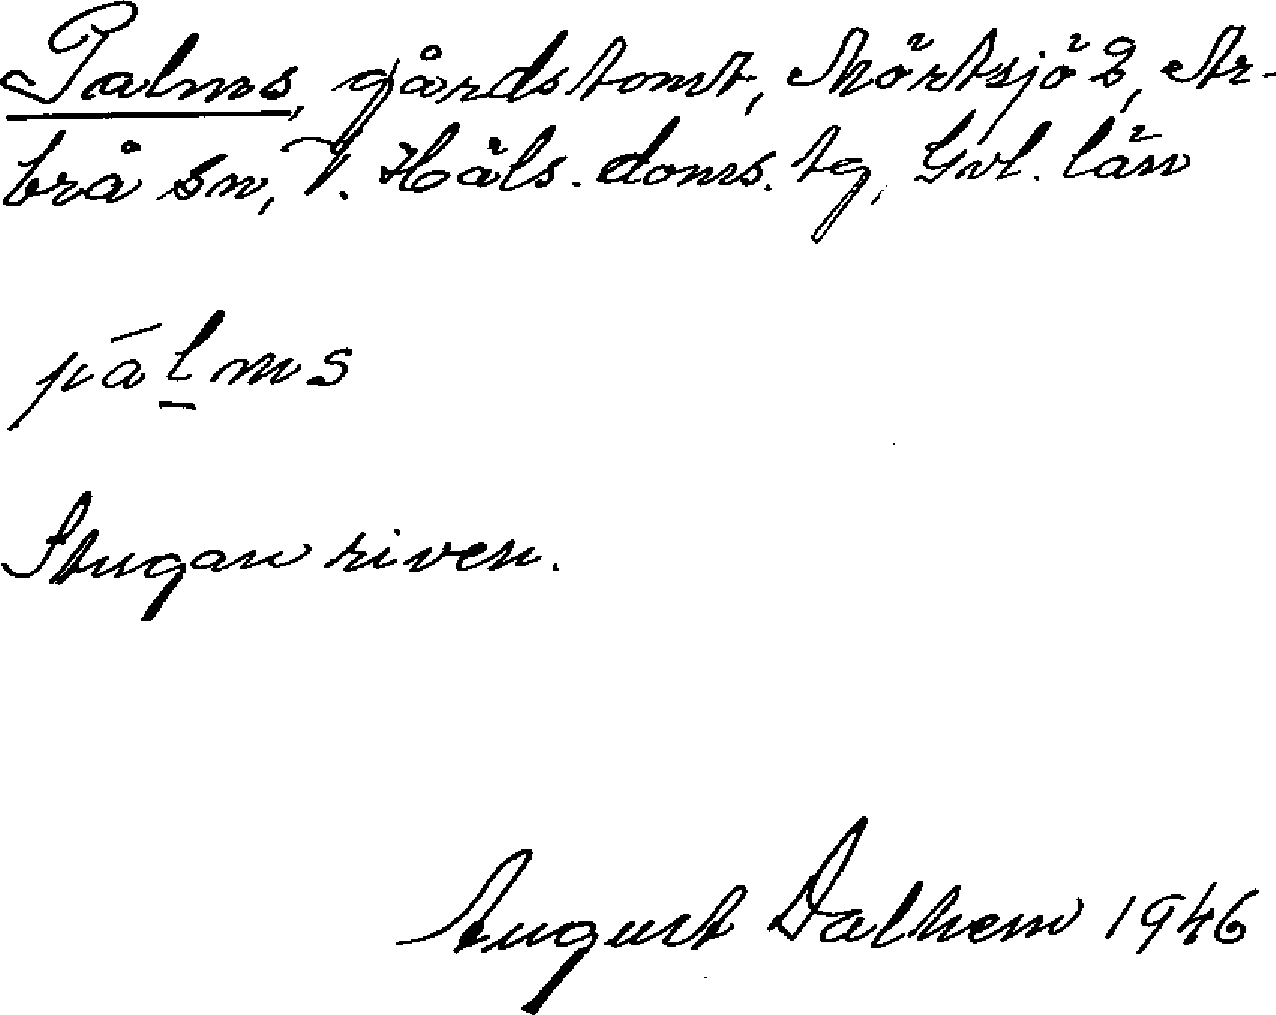 Palms, gårdstomt, Mörtsjö 2, Ar-
brå sn, V. Häls. doms. tg, Gvl. län
pālms
Stugan riven.
August Dalhem 1946